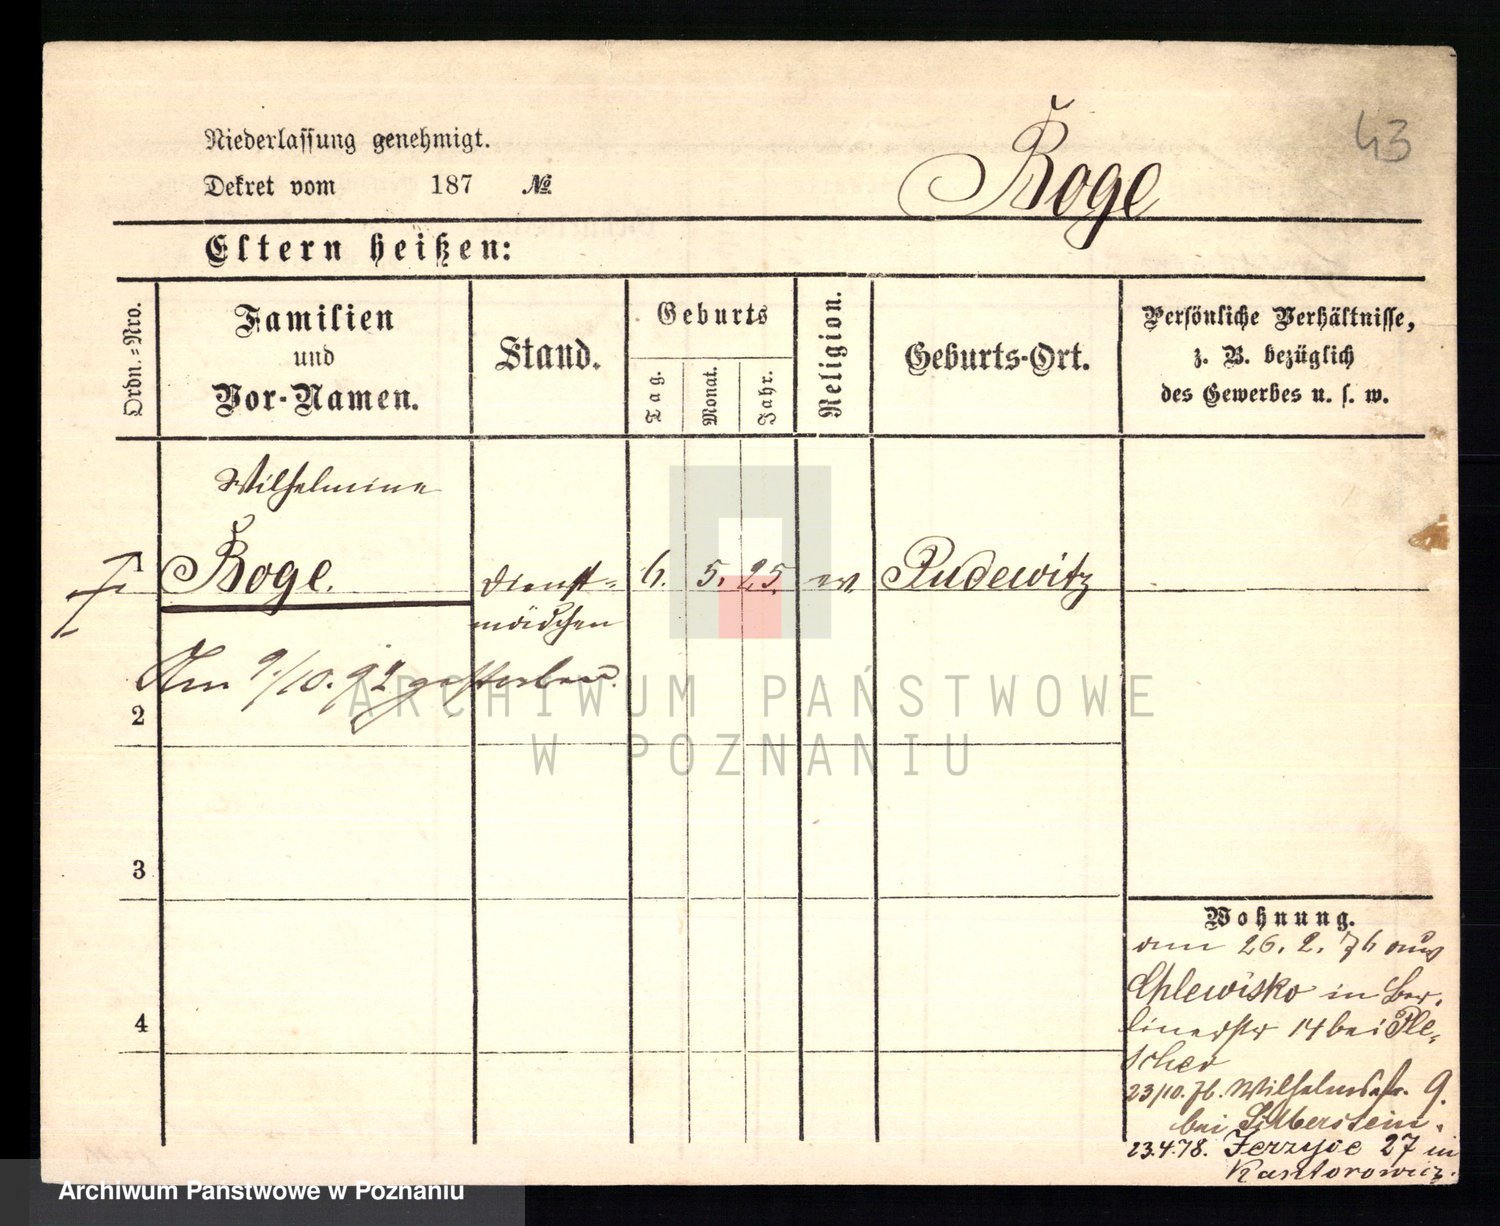 43
Niederlassung genehmigt.
Dekret vom 187 №
Boge
Eltern heißen:
Ordn.-Nro.
Familien
und
Vor-Namen.
Stand.
Geburts
Tag.
Monat.
Jahr.
Religion.
Geburts-Ort.
Persönliche Verhältnisse,
z. B. bezüglich
des Gewerbes u. s. w.
Wilhelmine
Boge. Dienst= 6. 5. 25. ev Pudewitz
mädchen
Am 9/10. 92 gestorben.
2
3
4
Wohnung.
am 26. 2. 76 aus
Chlewisko in Ber,
linerstr 14 bei Ple,
scher
23/10. 76. Wilhelmstr. 9.
bei Silberstein.
23.4.78. Jerzyce 27 in
Kantorowicz.
ARCHIWUM PAŃSTWOWE
W POZNANIU
Archiwum Państwowe w Poznaniu